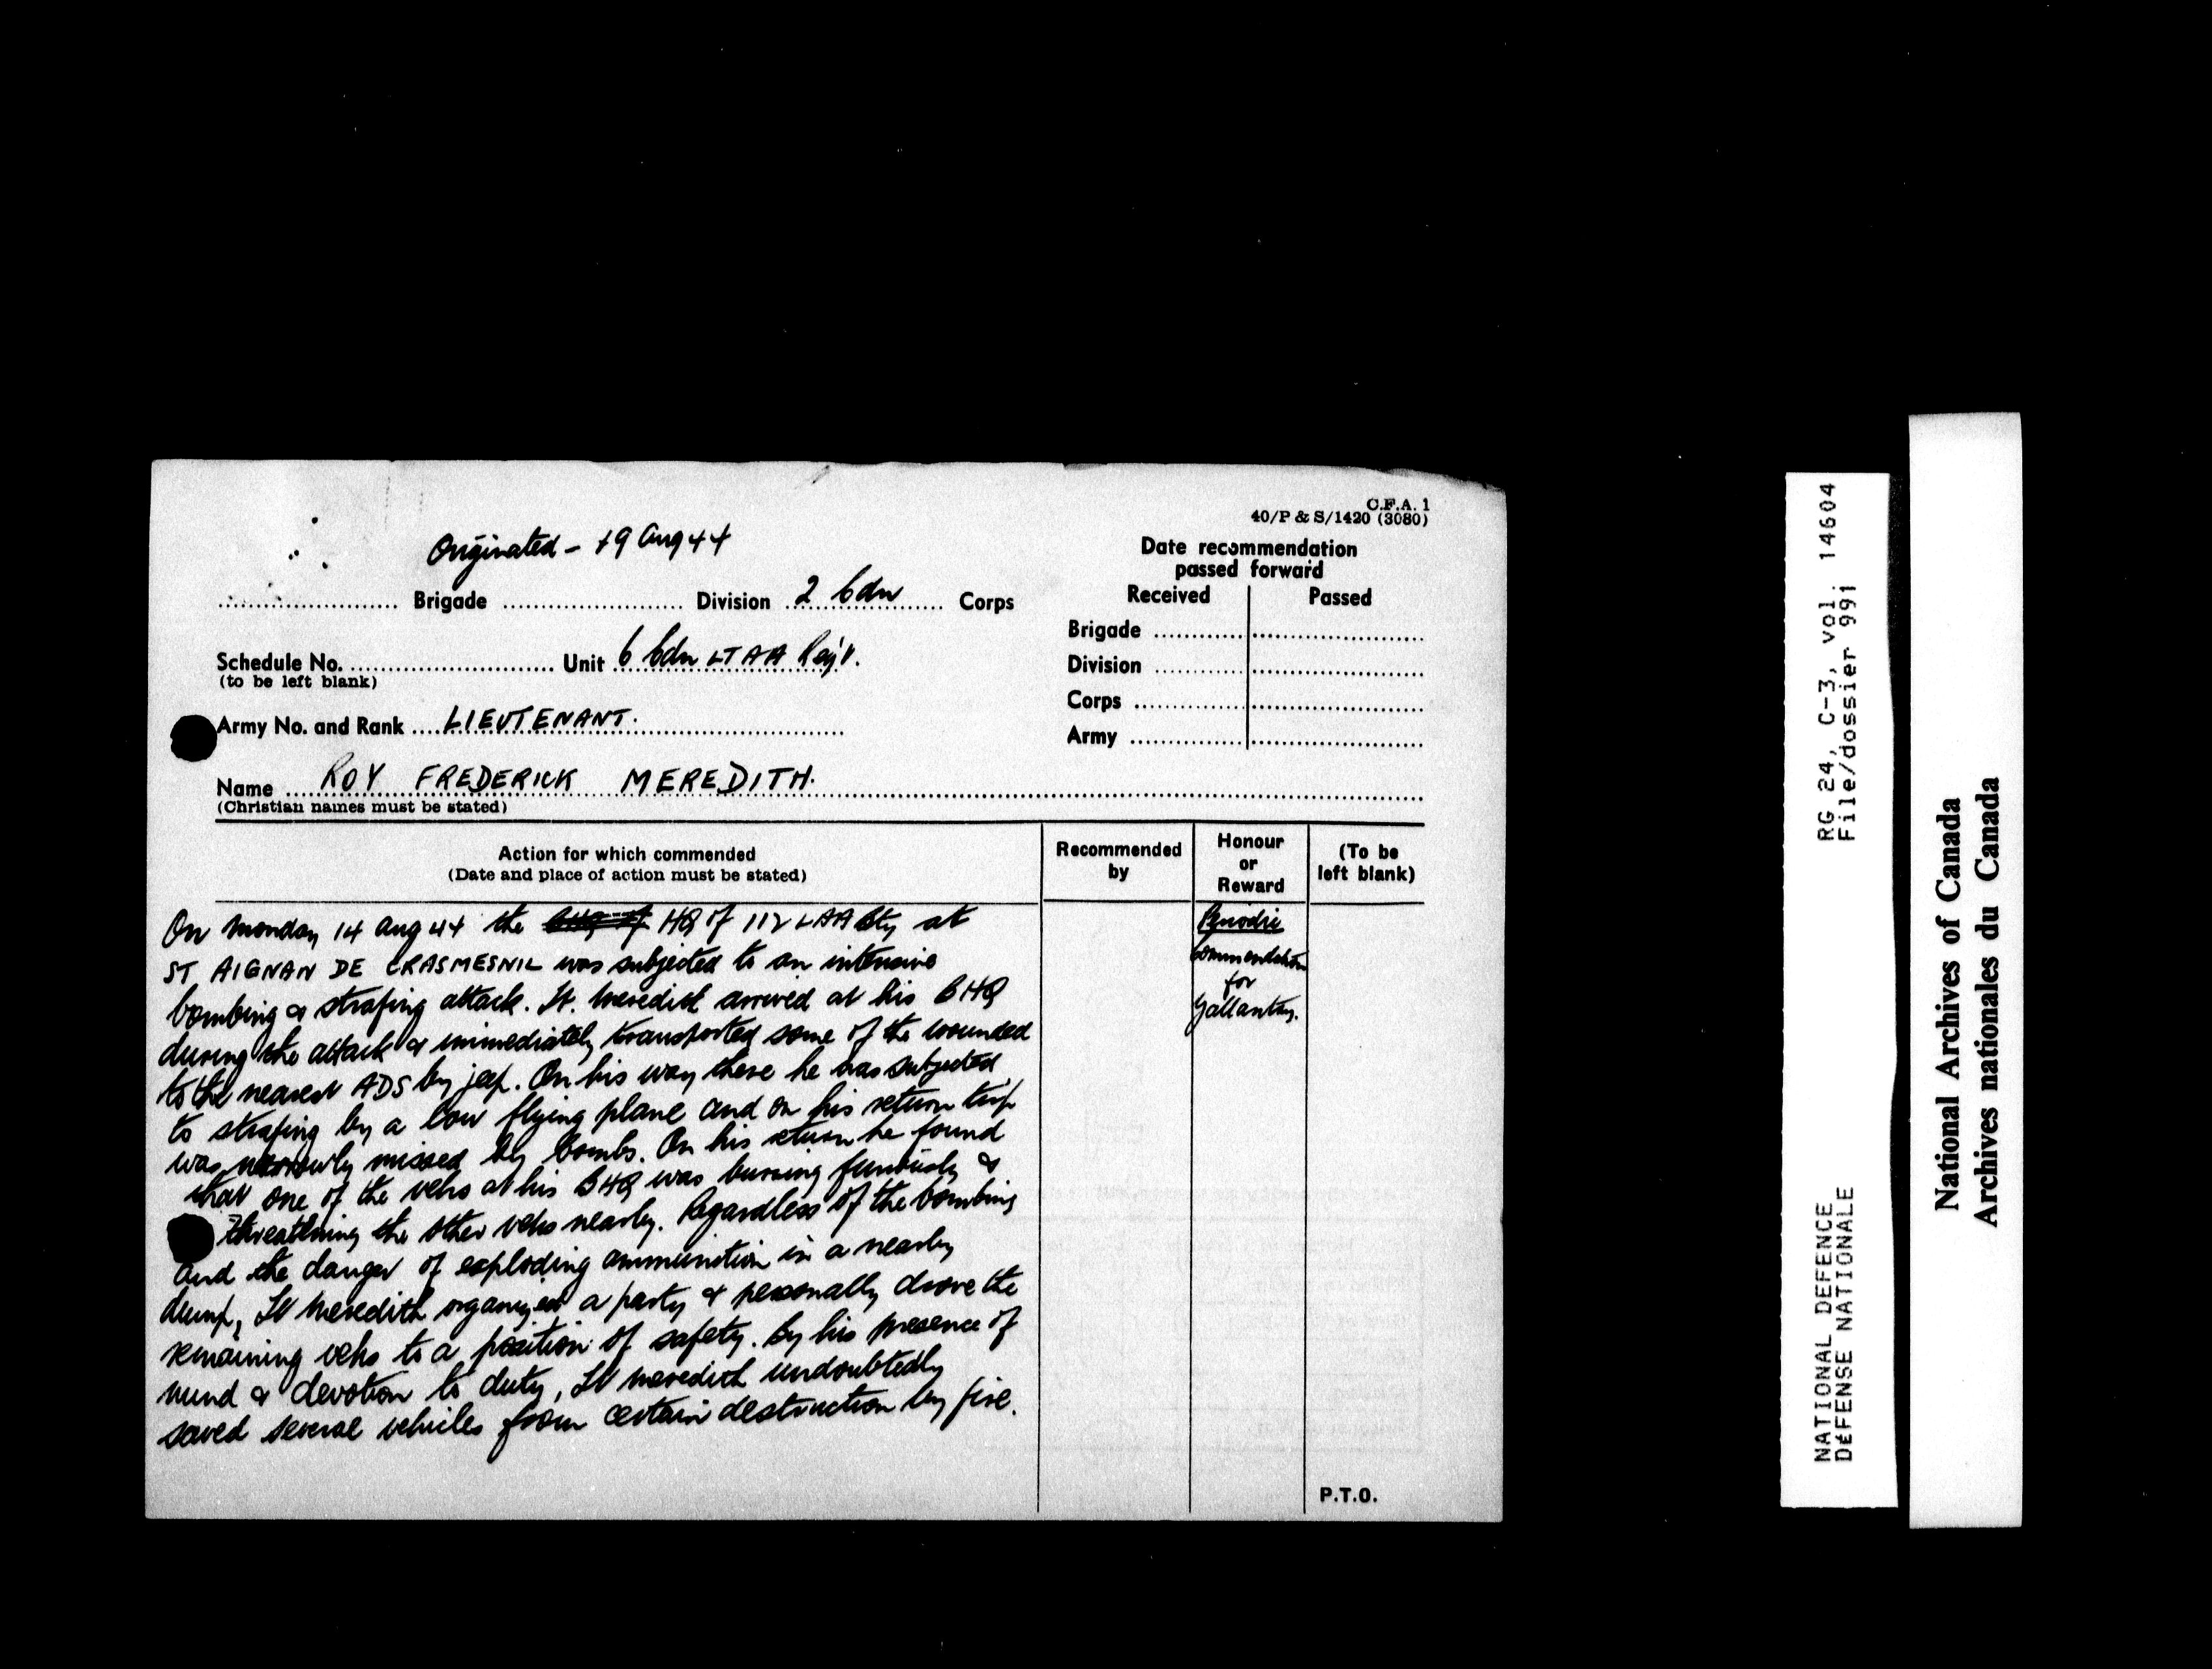 C.F.A. 1
40/P & S/1420 (3080)
Originated - 19 Aug 44
Date recommendation
passed forward
Received Passed
Brigade Division 2 Cdn Corps
Brigade
Schedule No. Unit 6 Cdn LT AA Reg't.
(to be left blank)
Division
Corps
Army No. and Rank LIEUTENANT.
Army
Name ROY FREDERICK MEREDITH.
(Christian names must be stated)
Action for which commended
(Date and place of action must be stated)
Recommended
by
Honour
or
Reward
(To be
left blank)
On Monday 14 Aug 44 the HQ of 112 LAA Bty at
ST AIGNAN DE CRASMESNIL was subjected to an intensive
bombing & strafing attack. Lt. Meredith arrived at his BHQ
during the attack & immediately transported some of the wounded
to the nearest ADS by jeep. On his way there he was subjected
to strafing by a low flying plane and on his return trip
was narrowly missed by bombs. On his return he found
that one of the vehs at his BHQ was burning furiously &
threatening the other vehs nearby. Regardless of the bombing
and the danger of exploding ammunition in a nearby
dump, Lt Meredith organized a party & personally drove the
remaining vehs to a position of safety. By his presence of
mind & devotion to duty, Lt Meredith undoubtedly
saved several vehicles from certain destruction by fire.
Periodic
Commendation
for
Gallantry.
P.T.O.
NATIONAL DEFENCE RG 24, C-3, vol. 14604
DÉFENSE NATIONALE File/dossier 991
National Archives of Canada
Archives nationales du Canada